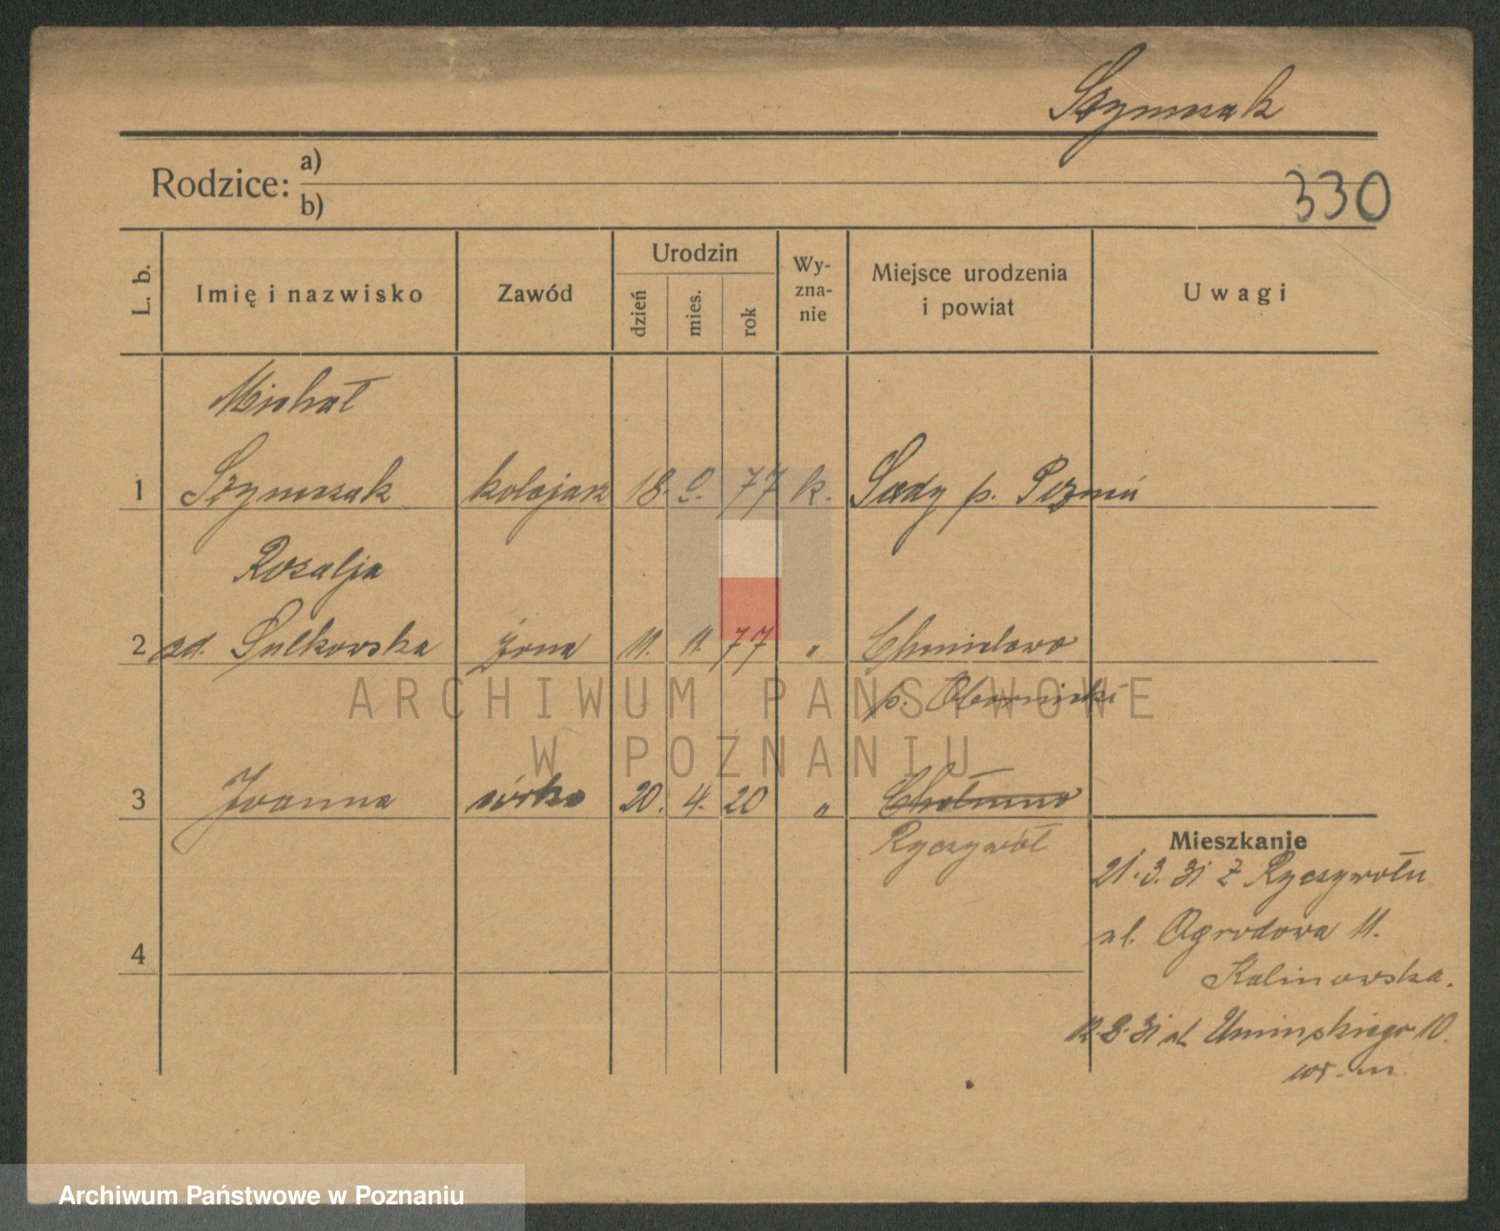 Szymczak
Rodzice: a)
b)
330
L. b. Imię i nazwisko Zawód Urodzin dzień mies. rok Wy-zna-nie Miejsce urodzenia i powiat Uwagi
Michał
1 Szymczak kolejarz 18. 9. 77 k. Sady p. Poznań
Rozalja
2 zd. Sulkowska żona 11. 11. 77 " Chmielewo
p. Oborniki
3 Joanna córka 20. 4. 20 "
Ryczywół
Mieszkanie
21.3.31 z Ryczywołu
ul. Ogrodowa 11.
Kalinowska.
4
12.8.31 ul. Umińskiego 10.
wr. m.
ARCHIWUM PAŃSTWOWE
W POZNANIU
Archiwum Państwowe w Poznaniu